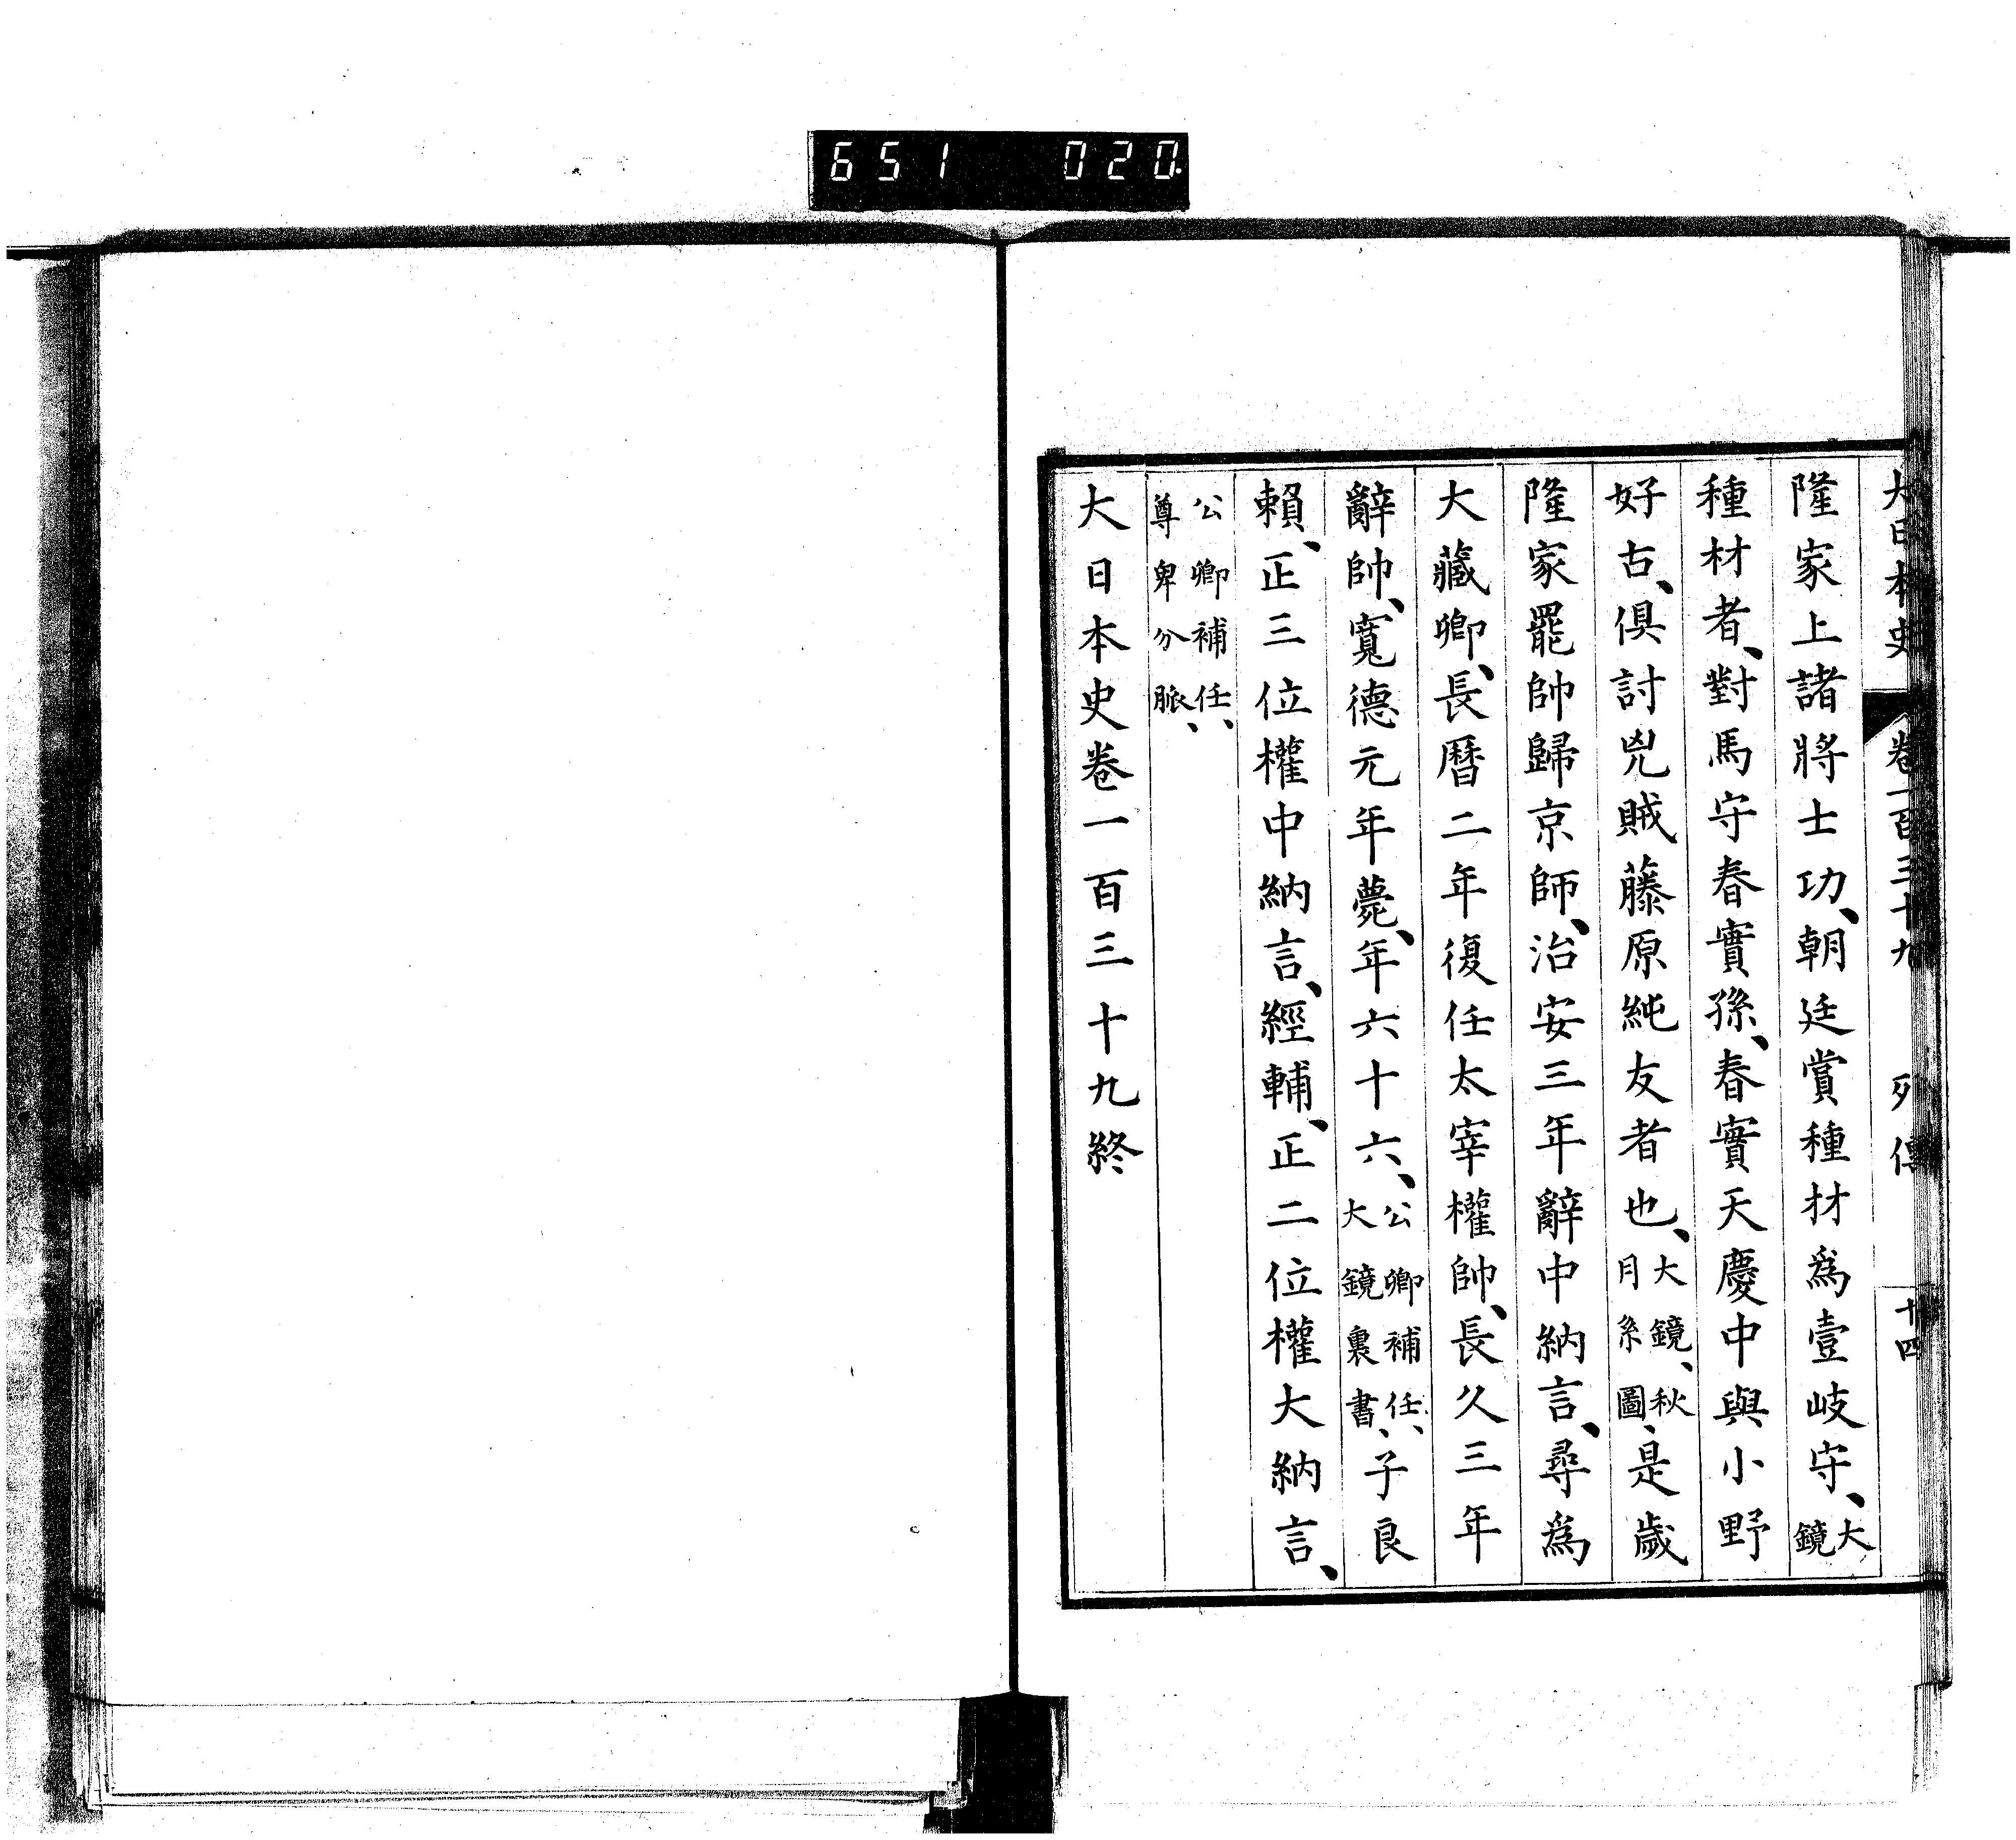 651 020.
大日本史 卷一百三十九 列傳 十四
隆家上諸將士功、朝廷賞種材爲壹岐守、大鏡
種材者、對馬守春實孫、春實天慶中與小野
好古、俱討兇賊藤原純友者也、大鏡、秋月系圖、是歲
隆家罷帥歸京師、治安三年辭中納言、尋爲
大藏卿、長曆二年復任太宰權帥、長久三年
辭帥、寬德元年薨、年六十六、公卿補任、大鏡裏書、子良
賴、正三位權中納言、經輔、正二位權大納言、
公卿補任、尊卑分脈、
大日本史卷一百三十九終